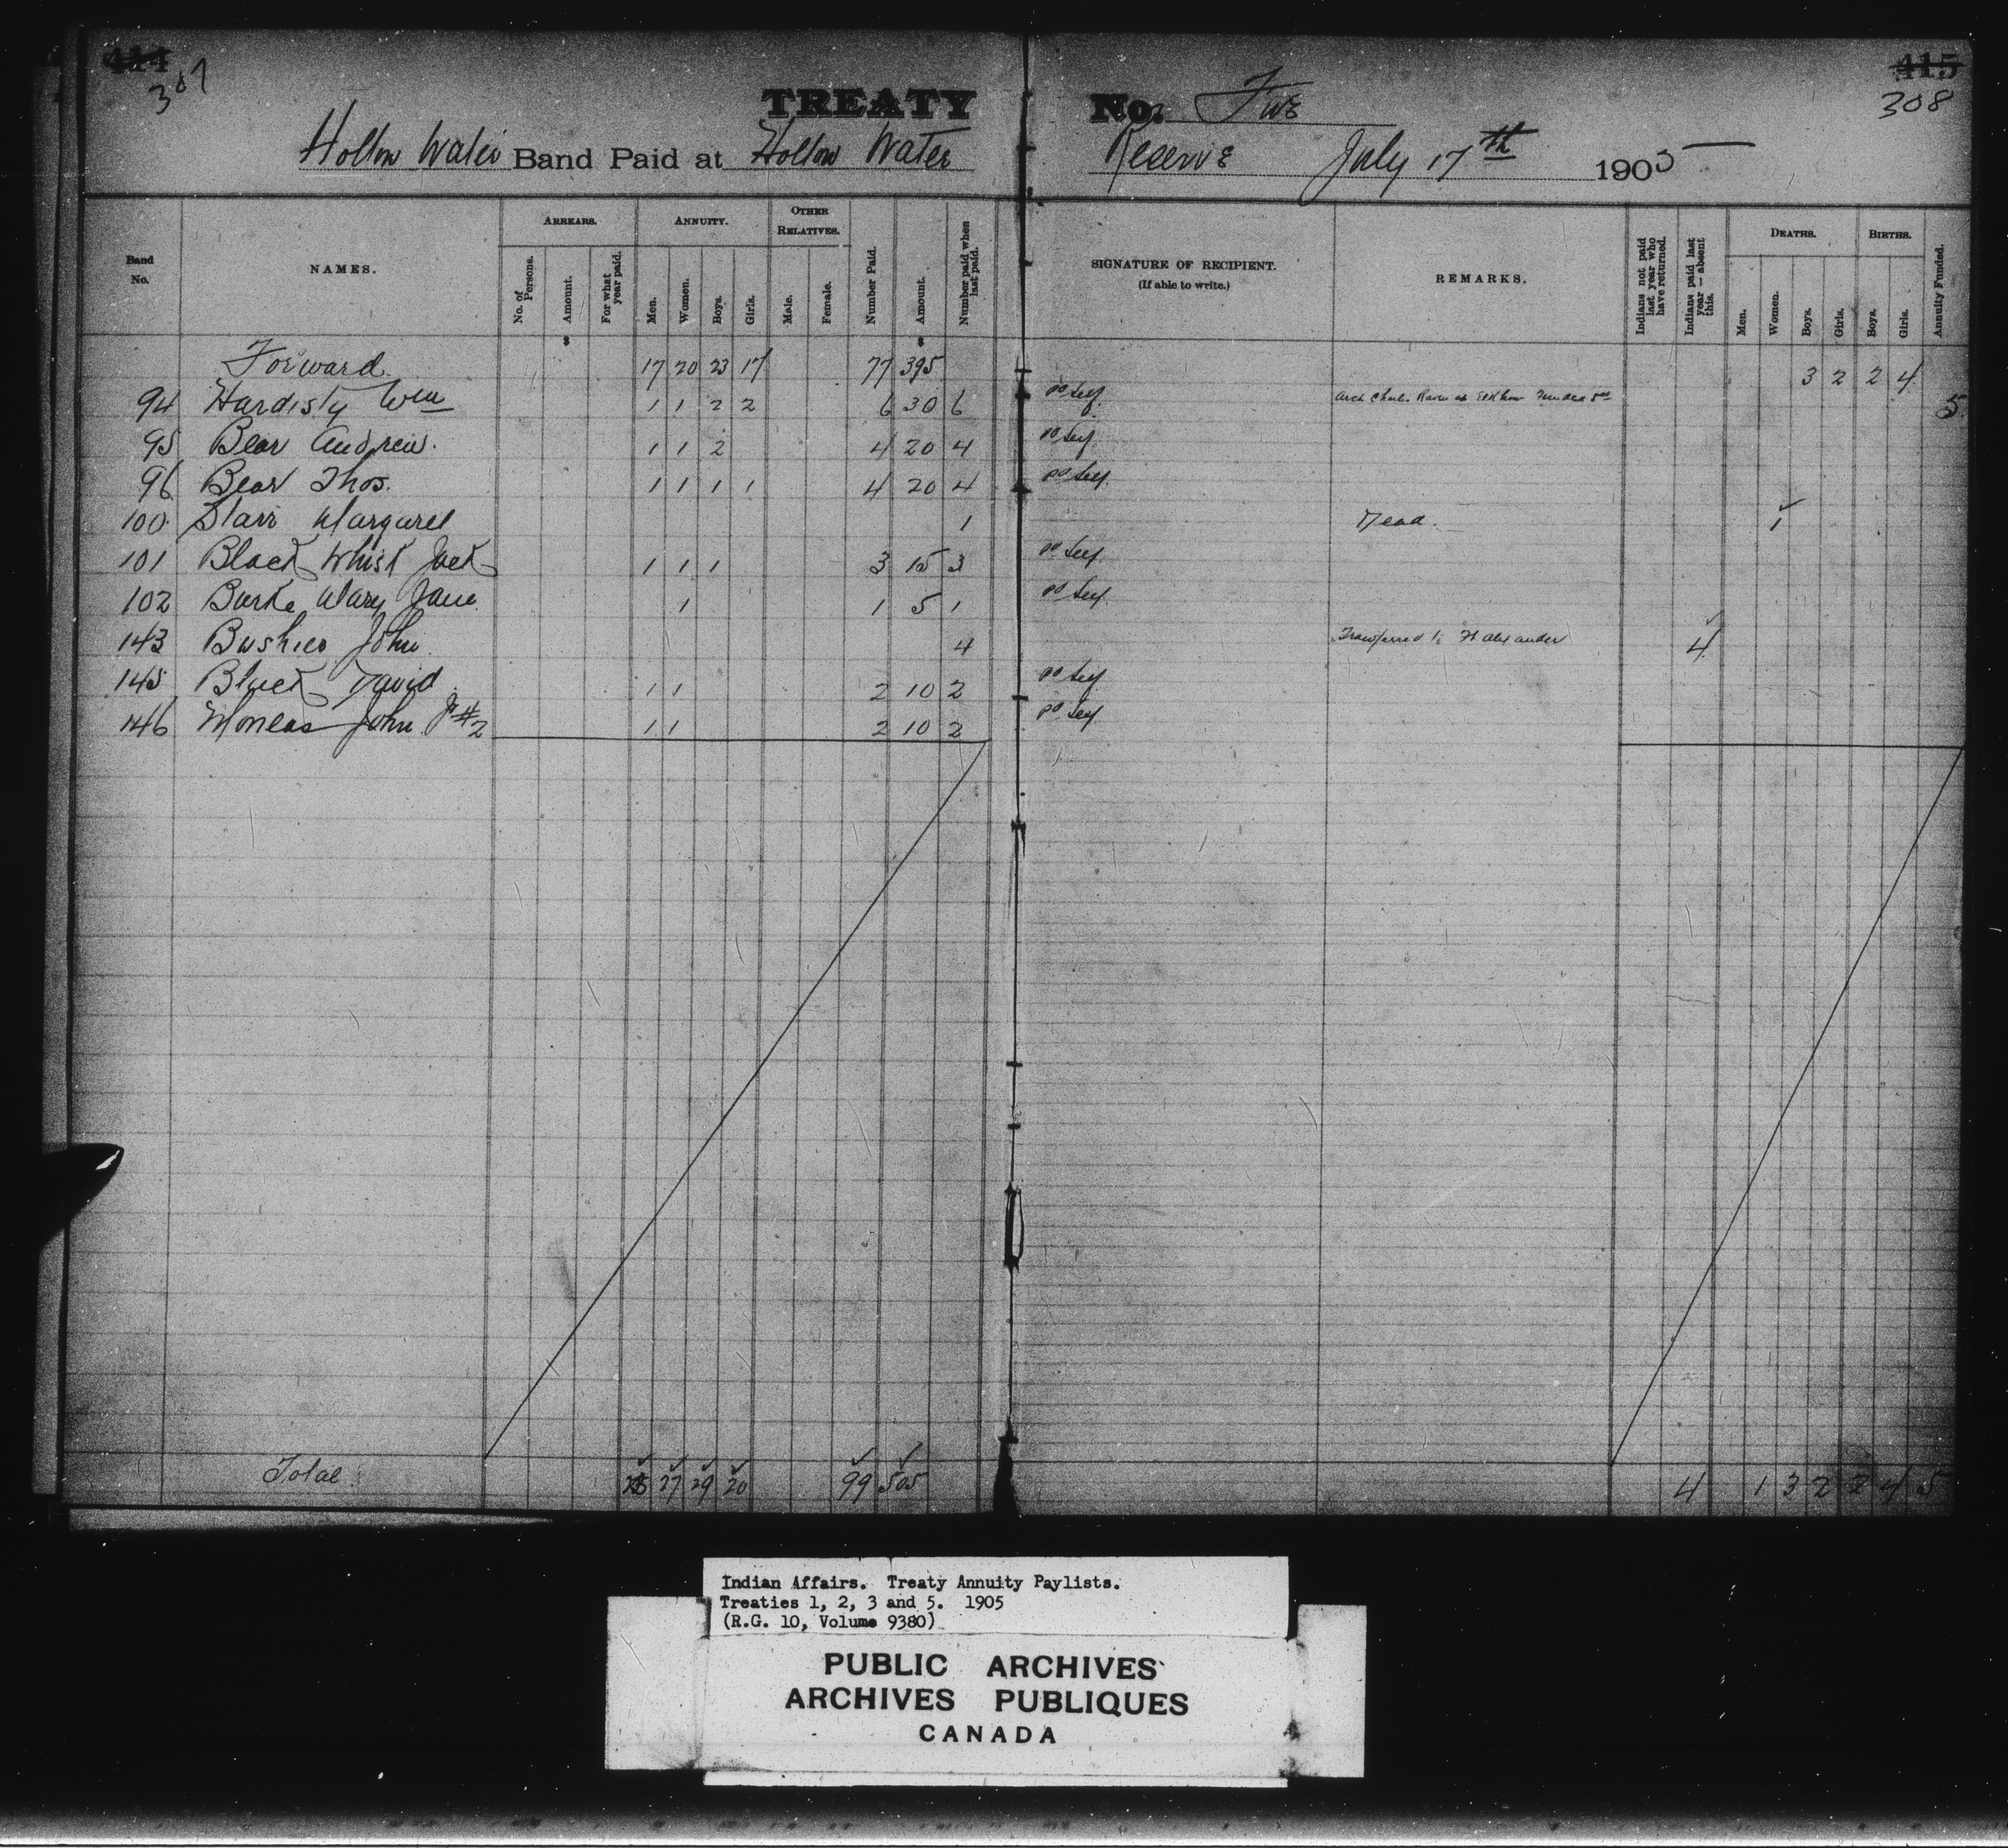 414 415
307 308
TREATY No. Five
Hollow Water Band Paid at Hollow Water Reserve July 17th 1905
Band No. NAMES. ARREARS. No. of Persons. Amount. For what year paid. ANNUITY. Men. Women. Boys. Girls. OTHER RELATIVES. Male. Female. Number Paid. Amount. Number paid when last paid. SIGNATURE OF RECIPIENT. (If able to write.) REMARKS. Indians not paid last year who have returned. Indians paid last year — absent this. DEATHS. Men. Women. Boys. Girls. BIRTHS. Boys. Girls. Annuity Funded.
Forward 17 20 23 17 77 395 3 2 2 4
94 Hardisty Wm 1 1 2 2 6 30 6 pd Self 5
95 Bear Andrew. 1 1 2 4 20 4 pd Self
96 Bear Thos. 1 1 1 1 4 20 4 pd Self
100 Starr Margaret 1 Dead. 1
101 Black Whisk Jack 1 1 1 3 15 3 pd Self
102 Burke Mary Jane 1 1 5 1 pd Self
143 Bushies John 4 Transferred to Ft Alexander 4
145 Black David 1 1 2 10 2 pd Self
146 Moneas John Jr #2 1 1 2 10 2 pd Self
Total 27 29 20 99 505 4 1 3 2 2 4 5
Indian Affairs. Treaty Annuity Paylists.
Treaties 1, 2, 3 and 5. 1905
(R.G. 10, Volume 9380)
PUBLIC ARCHIVES
ARCHIVES PUBLIQUES
CANADA